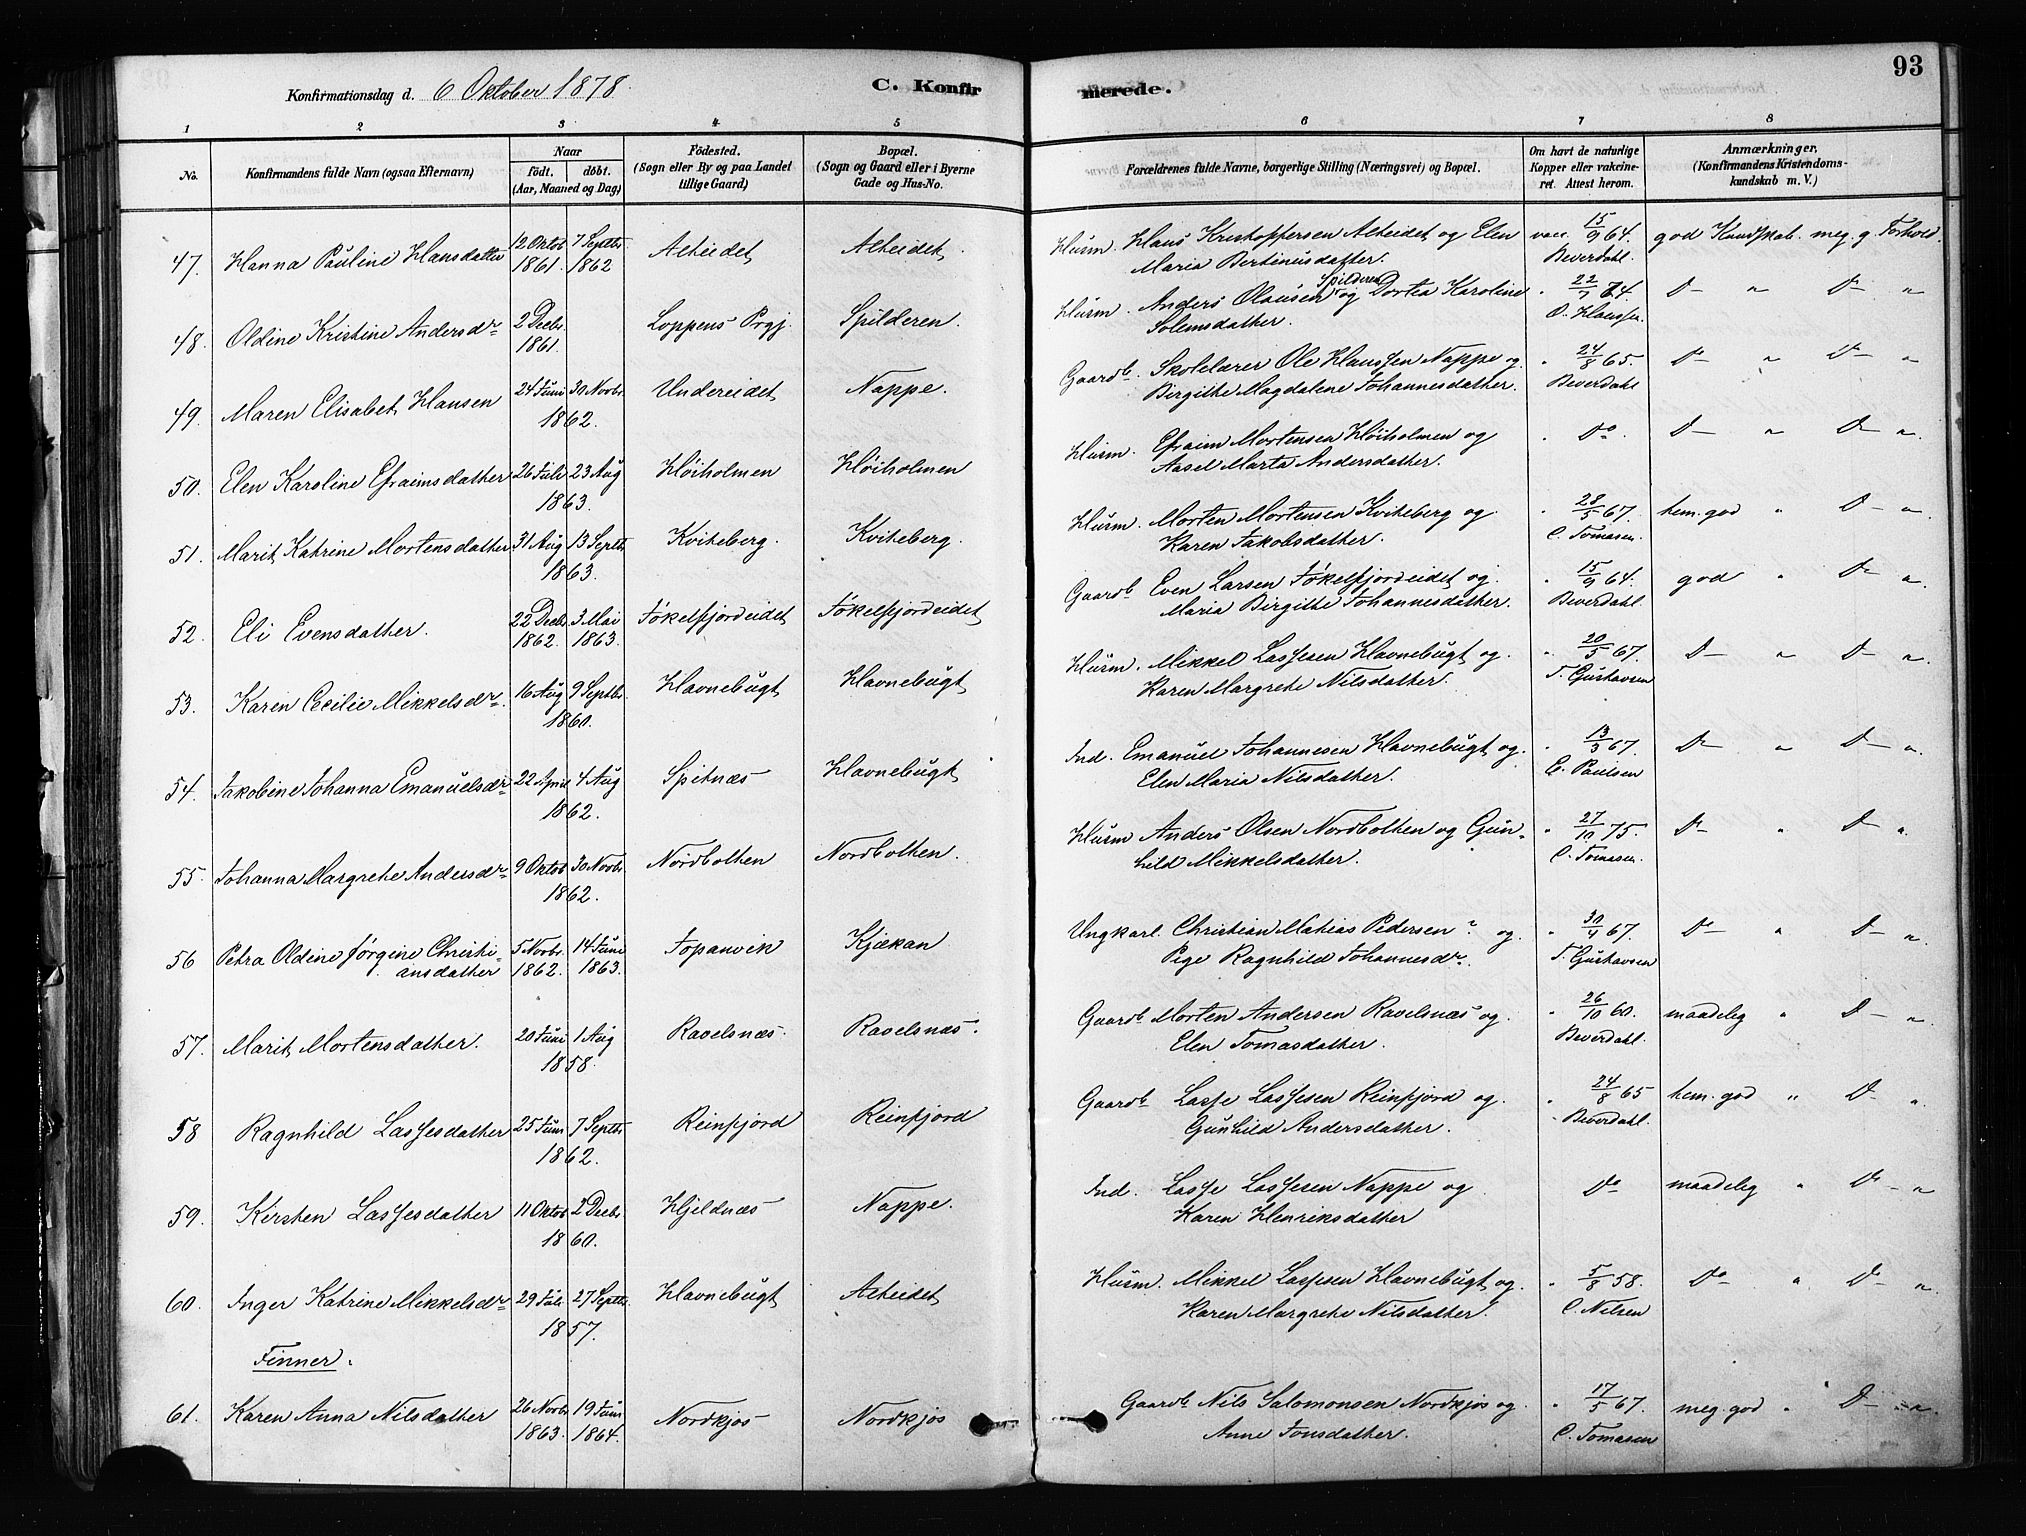 93
Konfirmationsdag d. 6 Oktober 1878.
C. Konfirmerede.
1 2 3 4 5 6 7 8
No.
Konfirmandens fulde Navn (ogsaa Efternavn)
Naar
født. døbt.
(Aar, Maaned og Dag)
Födested.
(Sogn eller By og paa Landet
tillige Gaard)
Bopæl.
(Sogn og Gaard eller i Byerne
Gade og Hus-No.
Forældrenes fulde Navne, borgerlige Stilling (Næringsvei) og Bopæl.
Om havt de naturlige
Kopper eller vakcine-
ret. Attest herom.
Anmærkninger.
(Konfirmandens Kristendoms-
kundskab m. V.)
47. Hanna Pauline Hansdatter 12 Oktob. 1861. 7 Septbr. 1862 Alteidet Alteidet.
Husm. Hans Kristoffersen Alteidet og Elen
Maria Bertinusdatter.
vacc. 15/9 64. Beverdahl. god Kundskab. meg. g. Forhold.
48. Oldine Kristine Andersdr 2 Decbr. 1861. Loppens Prgj. Spilderen.
Husm. Anders Olausen Spilderen og Dortea Karoline
Solemsdatter.
" 22/7 74. O. Klaussen. D— " D— "
49. Maren Elisabet Hansen 24 Juni 30 Novbr. 1862. Undereidet Nappe.
Gaardb. Skolelærer Ole Hanssen Nappe og
Birgithe Magdalene Johannesdatter.
" 24/8 65. Beverdahl D— " D— "
50. Elen Karoline Efraimsdatter 26 Juli 23 Aug 1863. Høiholmen Høiholmen
Husm. Efraim Mortensen Høiholmen og
Aasel Marta Andersdatter.
" Do. D— " D— "
51. Marit Katrine Mortensdatter 31 Aug 13 Septbr. 1863. Kviteberg. Kviteberg.
Husm. Morten Mortensen Kviteberg og
Karen Jakobsdatter.
" 28/5 67. C. Tomasen. hem. god " D— "
52. Eli Evensdatter. 22 Decbr. 1862. 3 Mai 1863. Jøkelfjordeidet Jøkelfjordeidet
Gaardb Even Larsen Jøkelfjordeidet og
Maria Birgithe Johannesdatter.
" 15/9 64. Beverdahl. god " D— "
53. Karen Cecilie Mikkelsdr. 16 Aug 9 Septbr. 1860. Havnebugt Havnebugt
Husm. Mikkel Lassesen Havnebugt og
Karen Margrethe Nilsdatter.
" 20/5 67. T. Gustavsen D— " D— "
54. Jakobine Johanna Emanuelsdr 22 April 4 Aug 1862. Spitnæs Havnebugt
Ind. Emanuel Johannesen Havnebugt og
Elen Maria Nilsdatter.
" 13/3 67. E. Paulsen D— " D— "
55. Johanna Margrethe Andersdr 9 Oktob. 30 Novbr. 1862. Nordbotten Nordbotten.
Husm Anders Olsen Nordbotten og Gun-
hild Mikkelsdatter.
" 27/10 75. C. Tomasen. D— " D— "
56 Petra Oldine Jørgine Christi-
ansdatter 5 Novbr. 1862. 14 Juni 1863. Topanvik Kjækan
Ungkarl. Christian Mathias Pedersen ? og
Pige Ragnhild Johannesdr.
" 30/4 67. T. Gustavsen D— " D— "
57. Marit Mortensdatter. 20 Juni 1 Aug 1858. Ravelsnæs. Ravelsnæs.
Gaardb Morten Andersen Ravelsnæs og
Elen Tomasdatter.
" 26/10 60. Beverdahl. maadelig " D— "
58 Ragnhild Lassesdatter 25 Juni 7 Septbr. 1862. Reinfjord Reinfjord
Gaardb Lasse Lassesen Reinfjord og
Gunhild Andersdatter.
" 24/8 65 Beverdahl. hem. god " D— "
59. Kirsten Lassesdatter 11 Oktob 2 Decbr. 1860. Hjeldnæs Nappe.
Ind. Lasse Lassesen Nappe og
Karen Henriksdatter
Do maadelig " D— "
60. Inger Katrine Mikkelsdr 29 Juli 27 Septbr. 1857. Havnebugt Alteidet
Husm. Mikkel Lassesen Havnebugt og
Karen Margrethe Nilsdatter.
" 5/8 58. C. Nilsen Do " D— "
Finner.
61. Karen Anna Nilsdatter 26 Novbr. 1863. 19 Juni 1864. Nordkjos Nordkjos
Gaardb Nils Salomonsen Nordkjos og
Anne Jonsdatter.
" 17/5 67. C. Tomasen meg. god " D— "